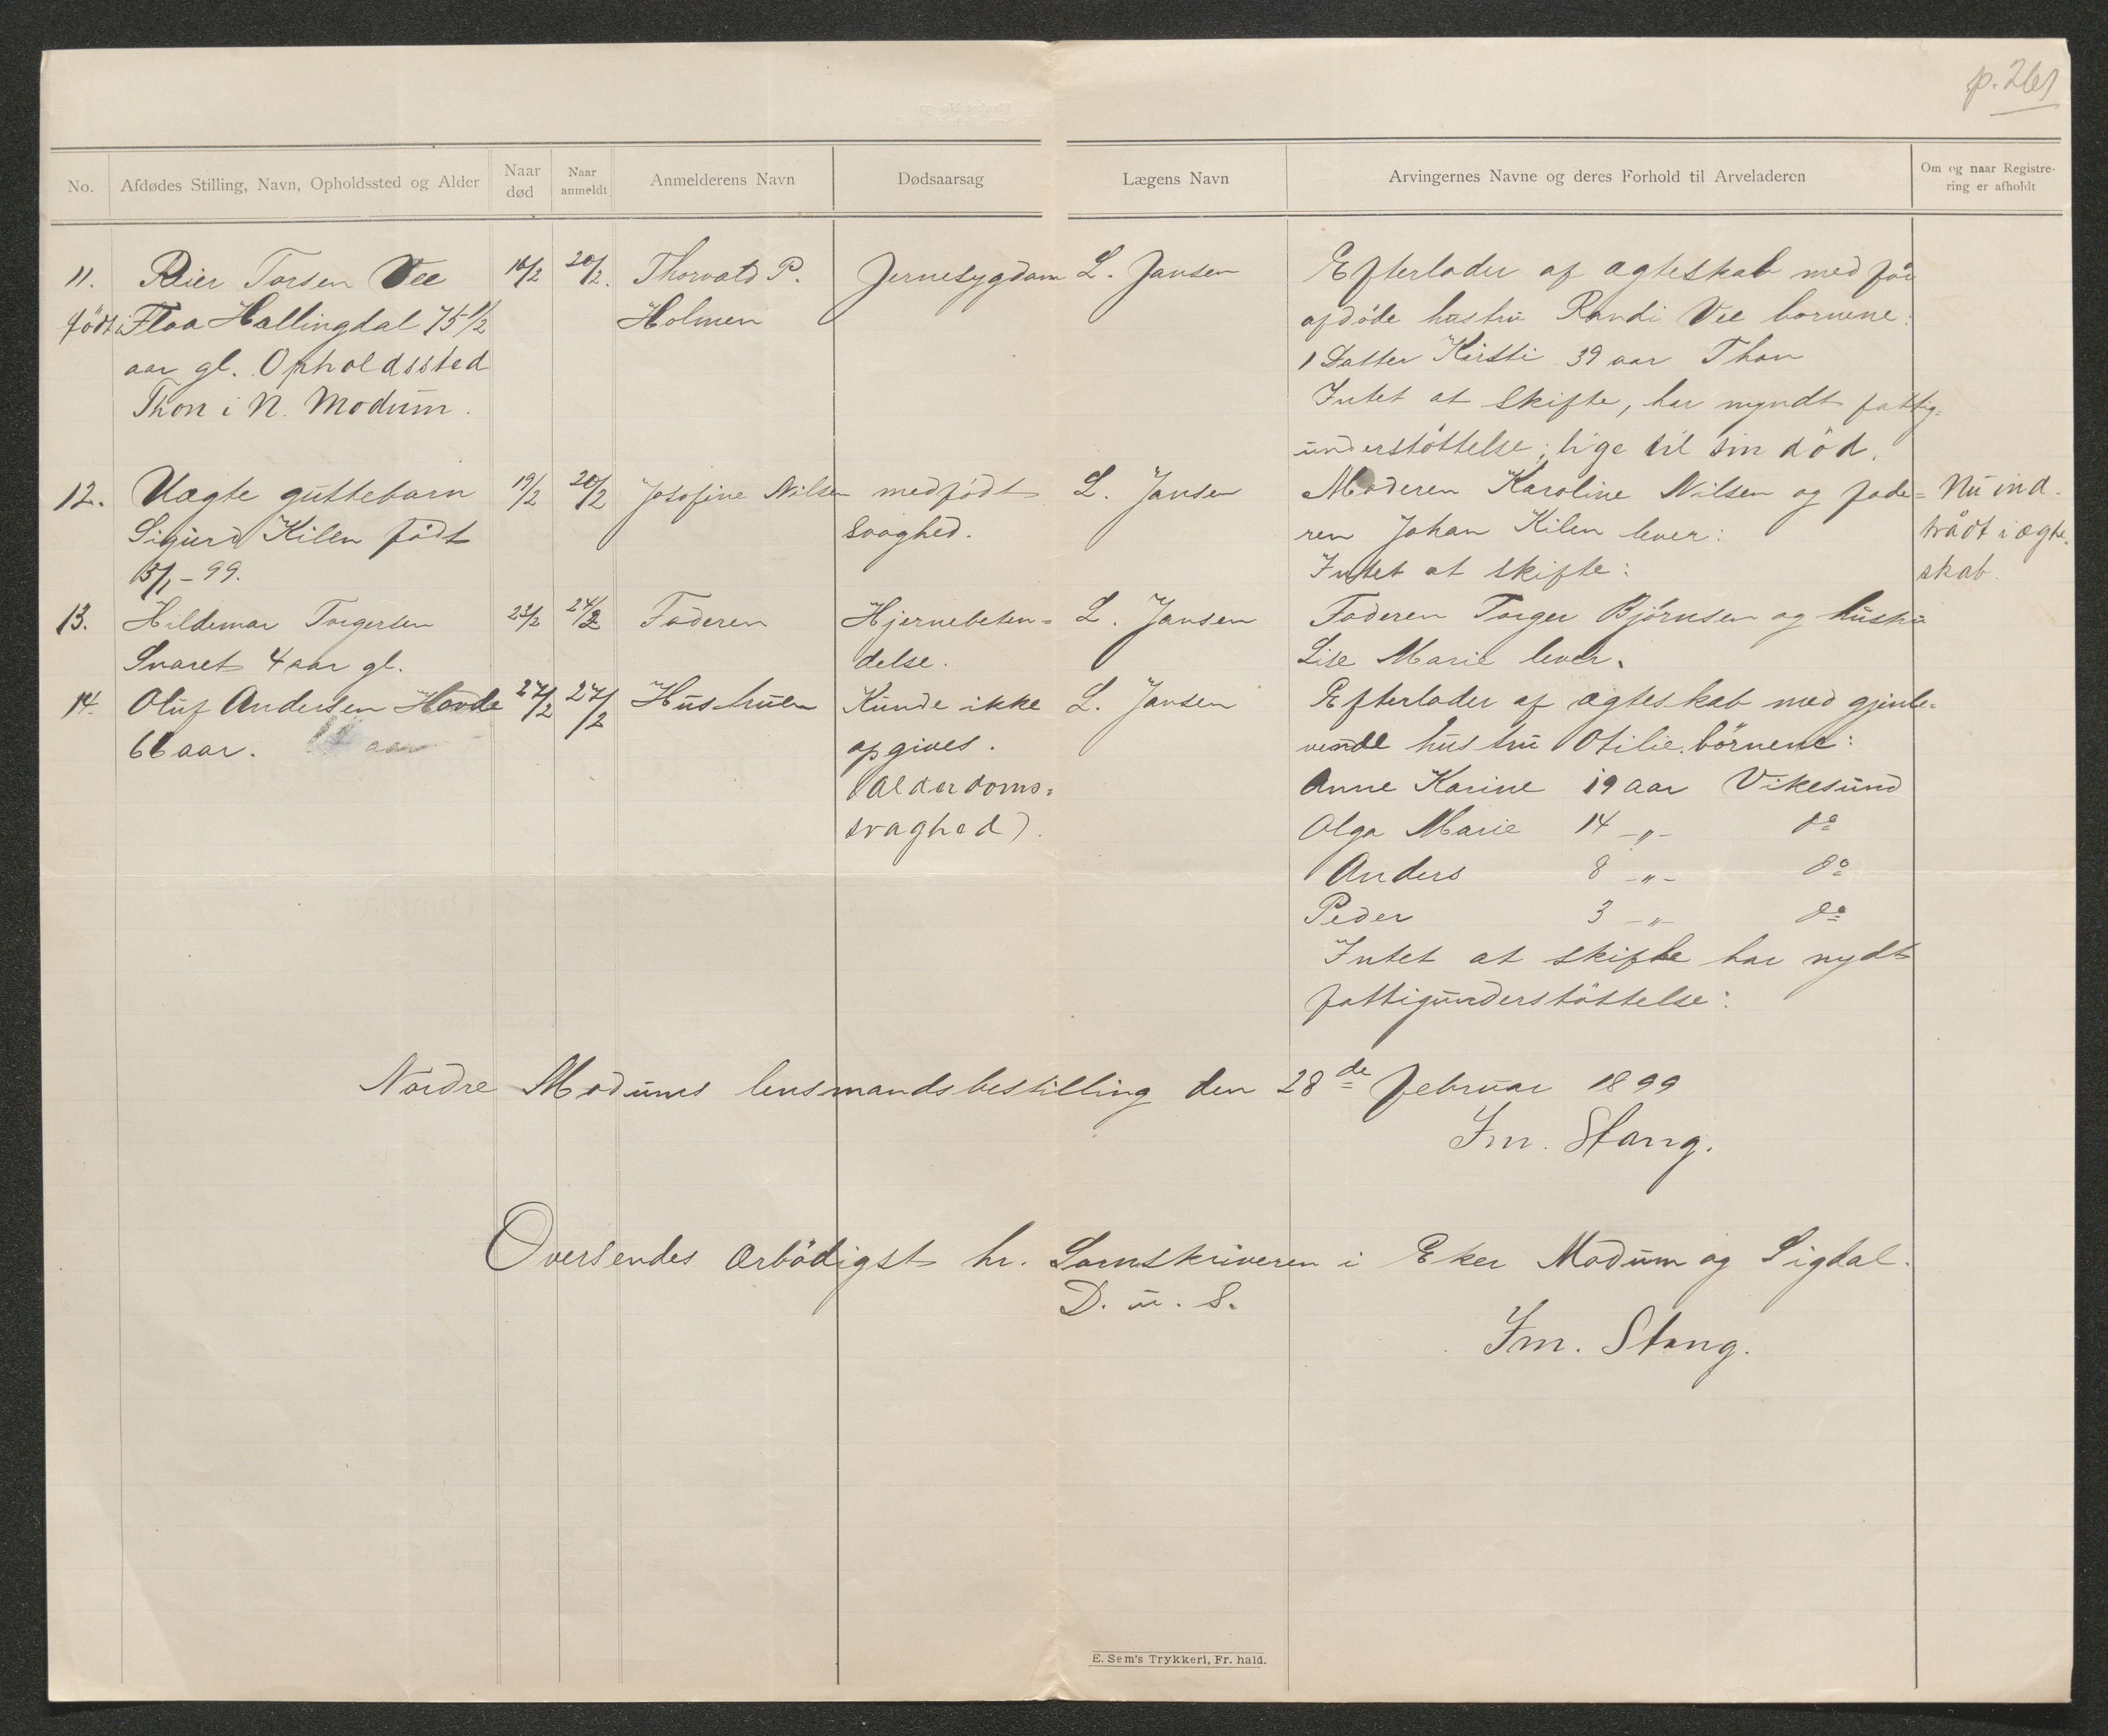 p. 261
No. Afdødes Stilling, Navn, Opholdssted og Alder Naar død Naar anmeldt Anmelderens Navn Dødsaarsag Lægens Navn Arvingernes Navne og deres Forhold til Arveladeren Om og naar Registrering er afholdt
11. Reier Torsen Vee 16/2 20/2. Thorvald P. Jernesygdom L. Jansen Efterlader af ægteskab med før
født i Flaa Hallingdal 75 1/2 Holmen afdøde hustru Randi Vee børnene:
aar gl. Opholdssted 1 Datter Kirsti 39 aar Thon
Thon i N. Modum. Intet at skifte, har nyndt fattig=
understøttelse; lige til sin død.
12. Uægte guttebarn 19/2 20/2 Josefine Nilsen medfødt L. Jansen Moderen Karoline Nilsen og fade= Nu ind-
Sigurd Kilen født svaghed. ren Johan Kilen lever: trådt i ægte-
15/1 - 99. Intet at skifte: skab.
13. Hildemar Torgersen 23/2 24/2 Faderen Hjernebeten= L. Jansen Faderen Torger Bjørnsen og hustru
Svaret 4 aar gl. delse. Lise Marie lever.
14. Oluf Andersen Hovde 27/2 27/2 Hustruen Kunde ikke L. Jansen Efterlader af ægteskab med gjenle=
66 aar. aar opgives. vende hustru Otilie. børnene:
(Alderdoms= Anne Karine 19 aar Vikesund
svaghed). Olga Marie 14 -„- do
Anders 8 -„- do
Peder 3 -„- do
Intet at skifte har nydt
fattigunderstøttelse:
Nordre Modums lensmandsbestilling den 28de februar 1899
Im. Stang.
Oversendes ærbødigst hr. Sornskriveren i Eker Modum og Sigdal.
D. u. S.
Im. Stang.
E. Sem's Trykkeri, Fr. hald.